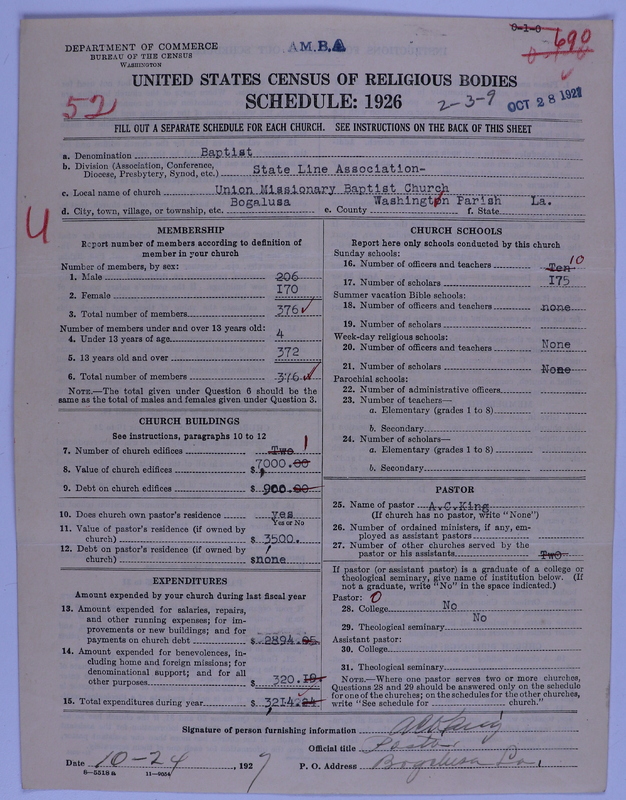 DEPARTMENT OF COMMERCE
BUREAU OF THE CENSUS
WASHINGTON
A.M.B.A
0-1-0
690
52
UNITED STATES CENSUS OF RELIGIOUS BODIES
SCHEDULE: 1926
2-3-9
OCT 28 1927
FILL OUT A SEPARATE SCHEDULE FOR EACH CHURCH. SEE INSTRUCTIONS ON THE BACK OF THIS SHEET
a. Denomination Baptist
b. Division (Association, Conference, Diocese, Presbytery, Synod, etc.) State Line Association-
c. Local name of church Union Missionary Baptist Church
d. City, town, village, or township, etc. Bogalusa e. County Washington Parish f. State La.
4
MEMBERSHIP
Report number of members according to definition of
member in your church
Number of members, by sex:
1. Male 206
2. Female 170
3. Total number of members 376
Number of members under and over 13 years old:
4. Under 13 years of age 4
5. 13 years old and over 372
6. Total number of members 376
NOTE.—The total given under Question 6 should be
same as the total of males and females given under Question 3.
CHURCH BUILDINGS
See instructions, paragraphs 10 to 12
7. Number of church edifices Two 1
8. Value of church edifices $ 7000.00
9. Debt on church edifices $ 900.00
10. Does church own pastor's residence yes
Yes or No
11. Value of pastor's residence (if owned by
church) $ 3500.
12. Debt on pastor's residence (if owned by
church) $none
EXPENDITURES
Amount expended by your church during last fiscal year
13. Amount expended for salaries, repairs,
and other running expenses; for im-
provements or new buildings; and for
payments on church debt $ 2894.05
14. Amount expended for benevolences, in-
cluding home and foreign missions; for
denominational support; and for all
other purposes $ 320.19
15. Total expenditures during year $ 321424
CHURCH SCHOOLS
Report here only schools conducted by this church
Sunday schools:
16. Number of officers and teachers Ten 10
17. Number of scholars 175
Summer vacation Bible schools:
18. Number of officers and teachers none
19. Number of scholars
Week-day religious schools:
20. Number of officers and teachers None
21. Number of scholars None
Parochial schools:
22. Number of administrative officers
23. Number of teachers—
a. Elementary (grades 1 to 8)
b. Secondary
24. Number of scholars—
a. Elementary (grades 1 to 8)
b. Secondary
PASTOR
25. Name of pastor A.C.King
(If church has no pastor, write "None")
26. Number of ordained ministers, if any, em-
ployed as assistant pastors
27. Number of other churches served by the
pastor or his assistants Two
If pastor (or assistant pastor) is a graduate of a college or
theological seminary, give name of institution below. (If
not a graduate, write "No" in the space indicated.)
Pastor: 0
28. College No
29. Theological seminary No
Assistant pastor:
30. College
31. Theological seminary
NOTE.—Where one pastor serves two or more churches,
Questions 28 and 29 should be answered only on the schedule
for one of the churches; on the schedules for the other churches,
write "See schedule for church."
Signature of person furnishing information A C King
Official title Pastor
Date 10-24, 1927 P. O. Address Bogalusa La,
8—5518a 11—9554